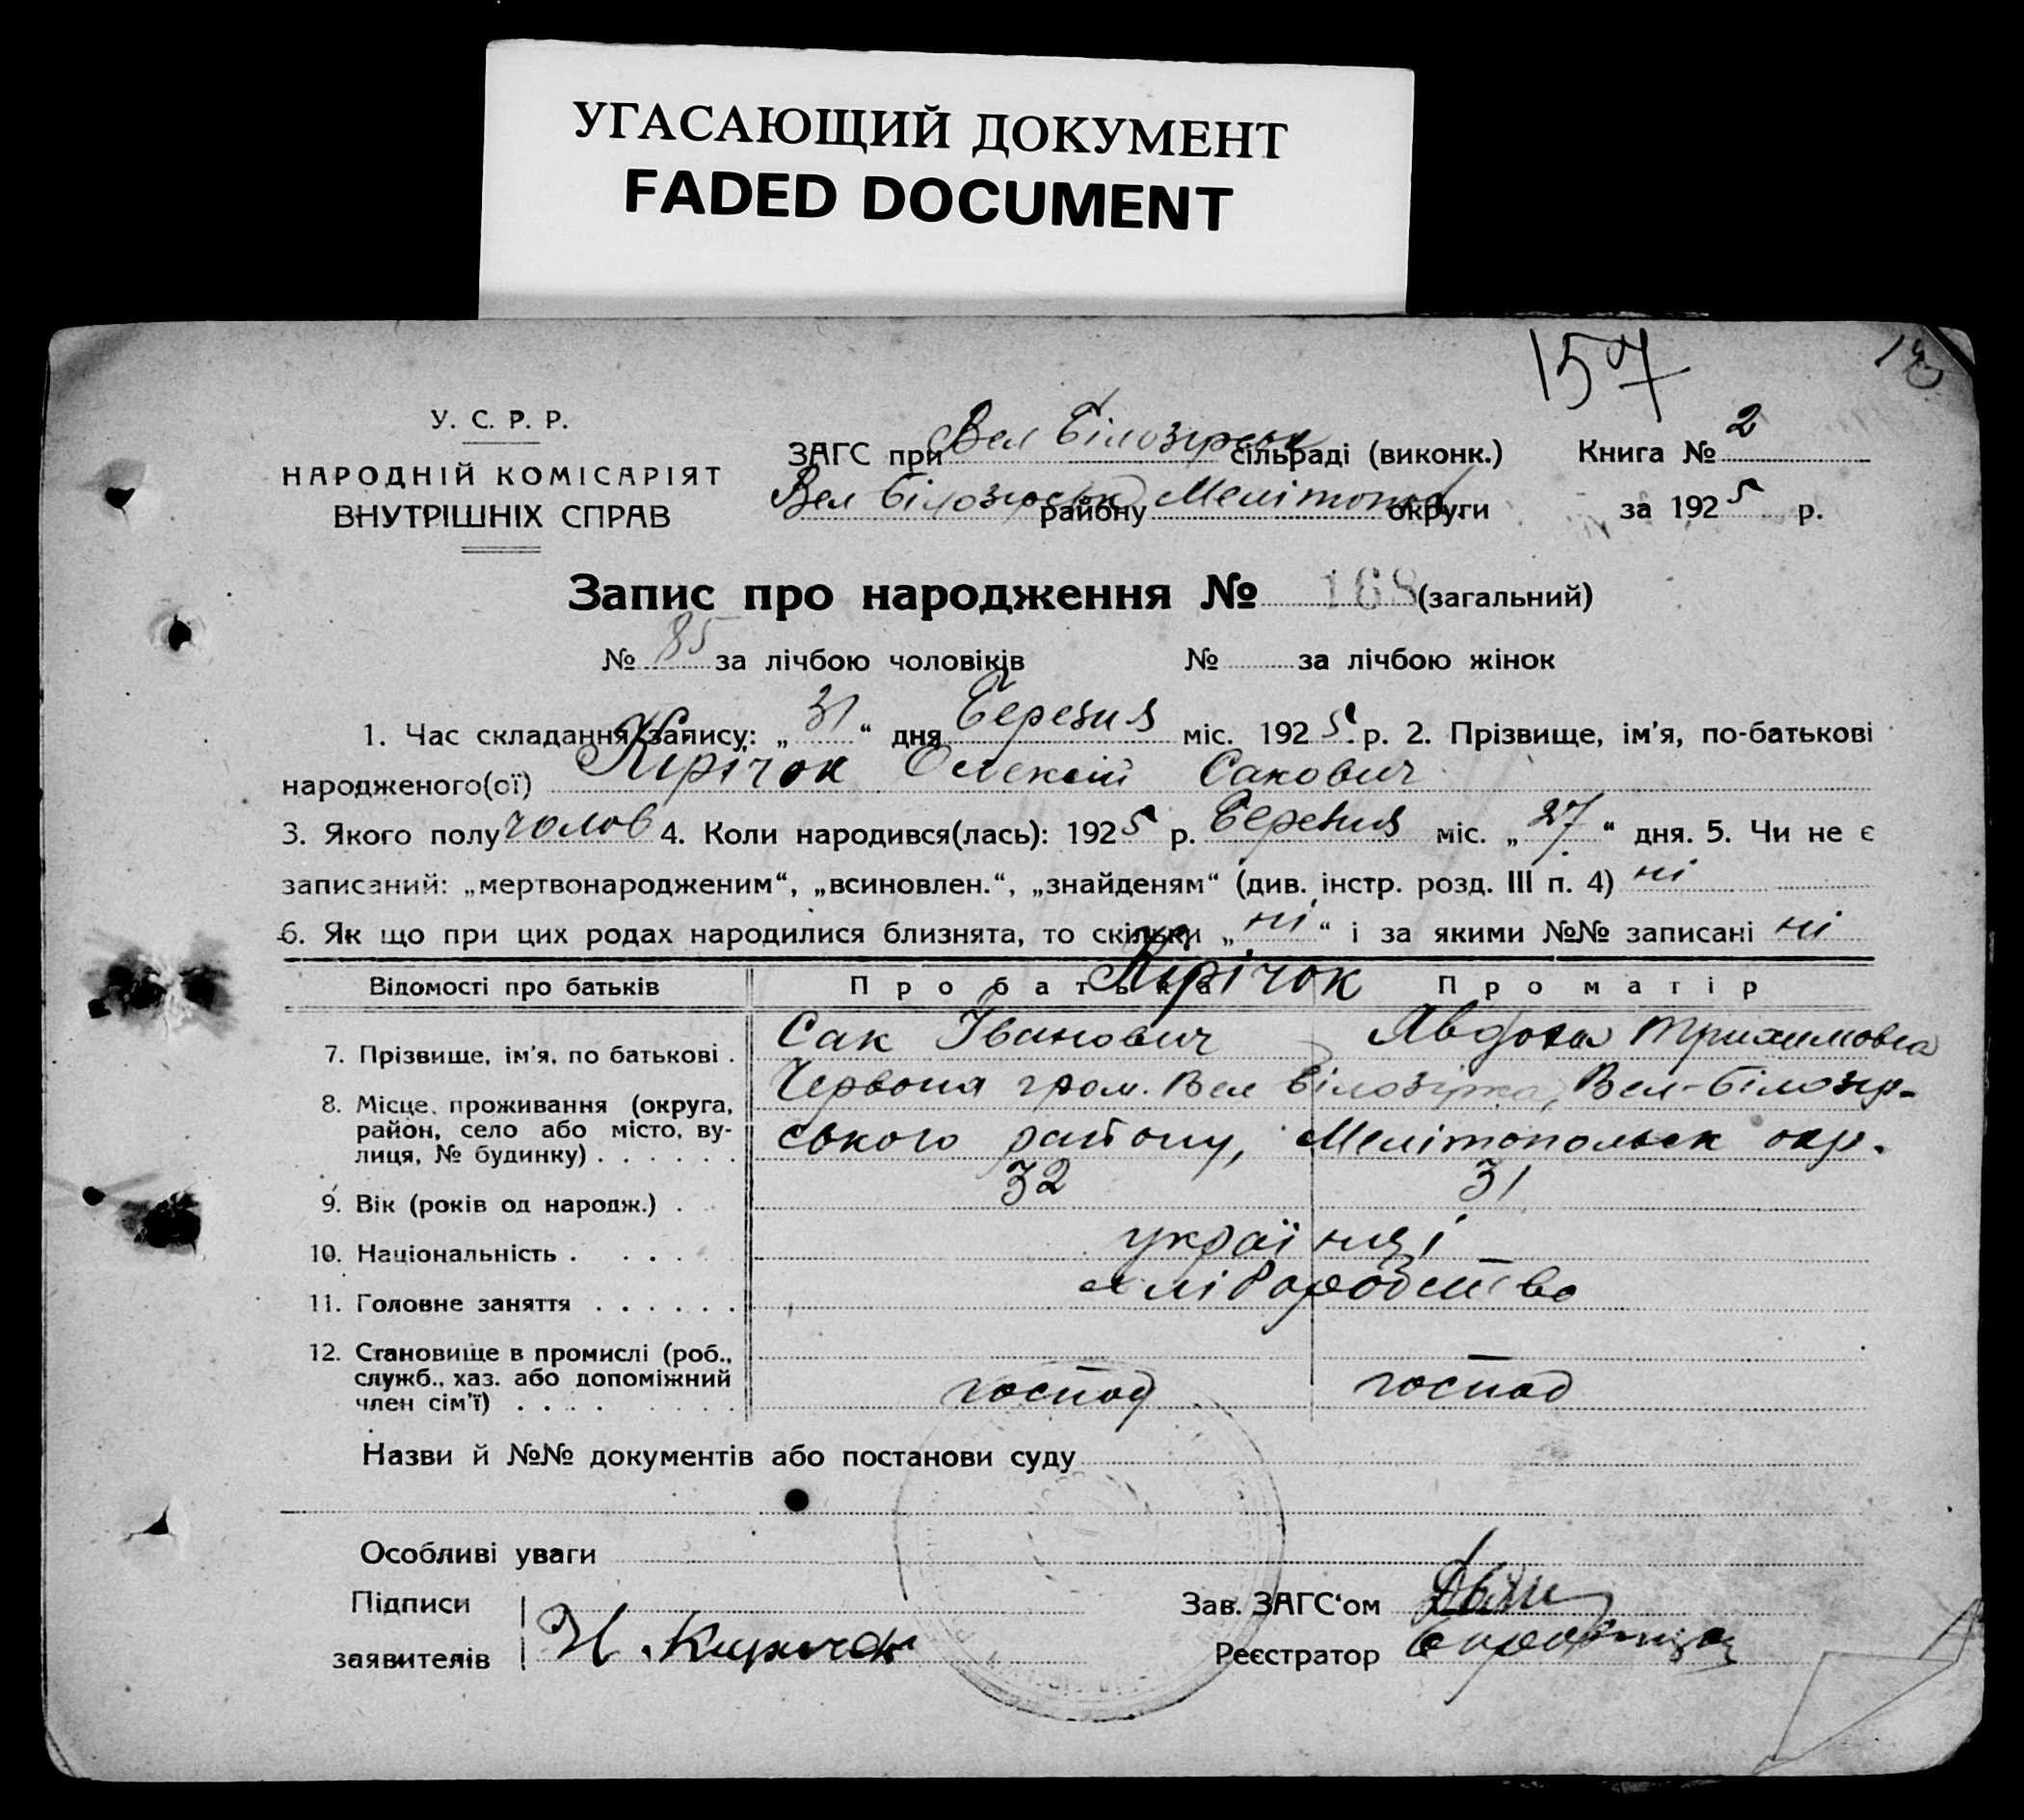 УГАСАЮЩИЙ ДОКУМЕНТ
FADED DOCUMENT
157
У. С. Р. Р.
НАРОДНІЙ КОМІСАРІЯТ
ВНУТРІШНІХ СПРАВ
ЗАГС при Вел Білозірськ сільраді (виконк.) Книга № 2
Вел Білозірськ району Мелітопол округи за 1925 р.
Запис про народження № 168 (загальний)
№ 85 за лічбою чоловіків № за лічбою жінок
1. Час складання запису: „31“ дня Березня міс. 1925 р. 2. Прізвище, ім'я, по-батькові
народженого(ої) Кірічок Олексій Сакович
3. Якого полу чолов 4. Коли народився(лась): 1925 р. Березня міс. „27“ дня. 5. Чи не є
записаний: „мертвонародженим“, „всиновлен.“, „знайденям“ (див. інстр. розд. III п. 4) ні
6. Як що при цих родах народилися близнята, то скільки „ні“ і за якими №№ записані ні
Відомості про батьків Про батька Про матір
Кірічок
7. Прізвище, ім'я, по батькові . Сак Іванович Явдоха Трихимовна
8. Місце проживання (округа, район, село або місто, вулиця, № будинку) . . . . . . Червона гром. Вел Білозірка, Вел-Білозір-
ського району, Мелітопольск окр.
9. Вік (років од народж.) . 32 31
10. Національність . . . . українці
11. Головне заняття . . . . . . хліборобство
12. Становище в промислі (роб., служб., хаз. або допоміжний член сім'ї) . . . . господ господ
Назви й №№ документів або постанови суду
Особливі уваги
Підписи
заявителів Н. Киричок
Зав. ЗАГС'ом
Реєстратор